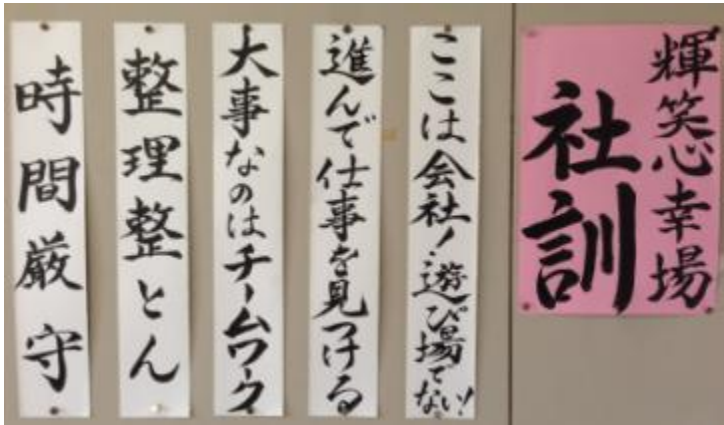 輝笑心幸場
社訓
ここは会社!遊び場でない!
進んで仕事を見つける
大事なのはチームワーク
整理整とん
時間厳守